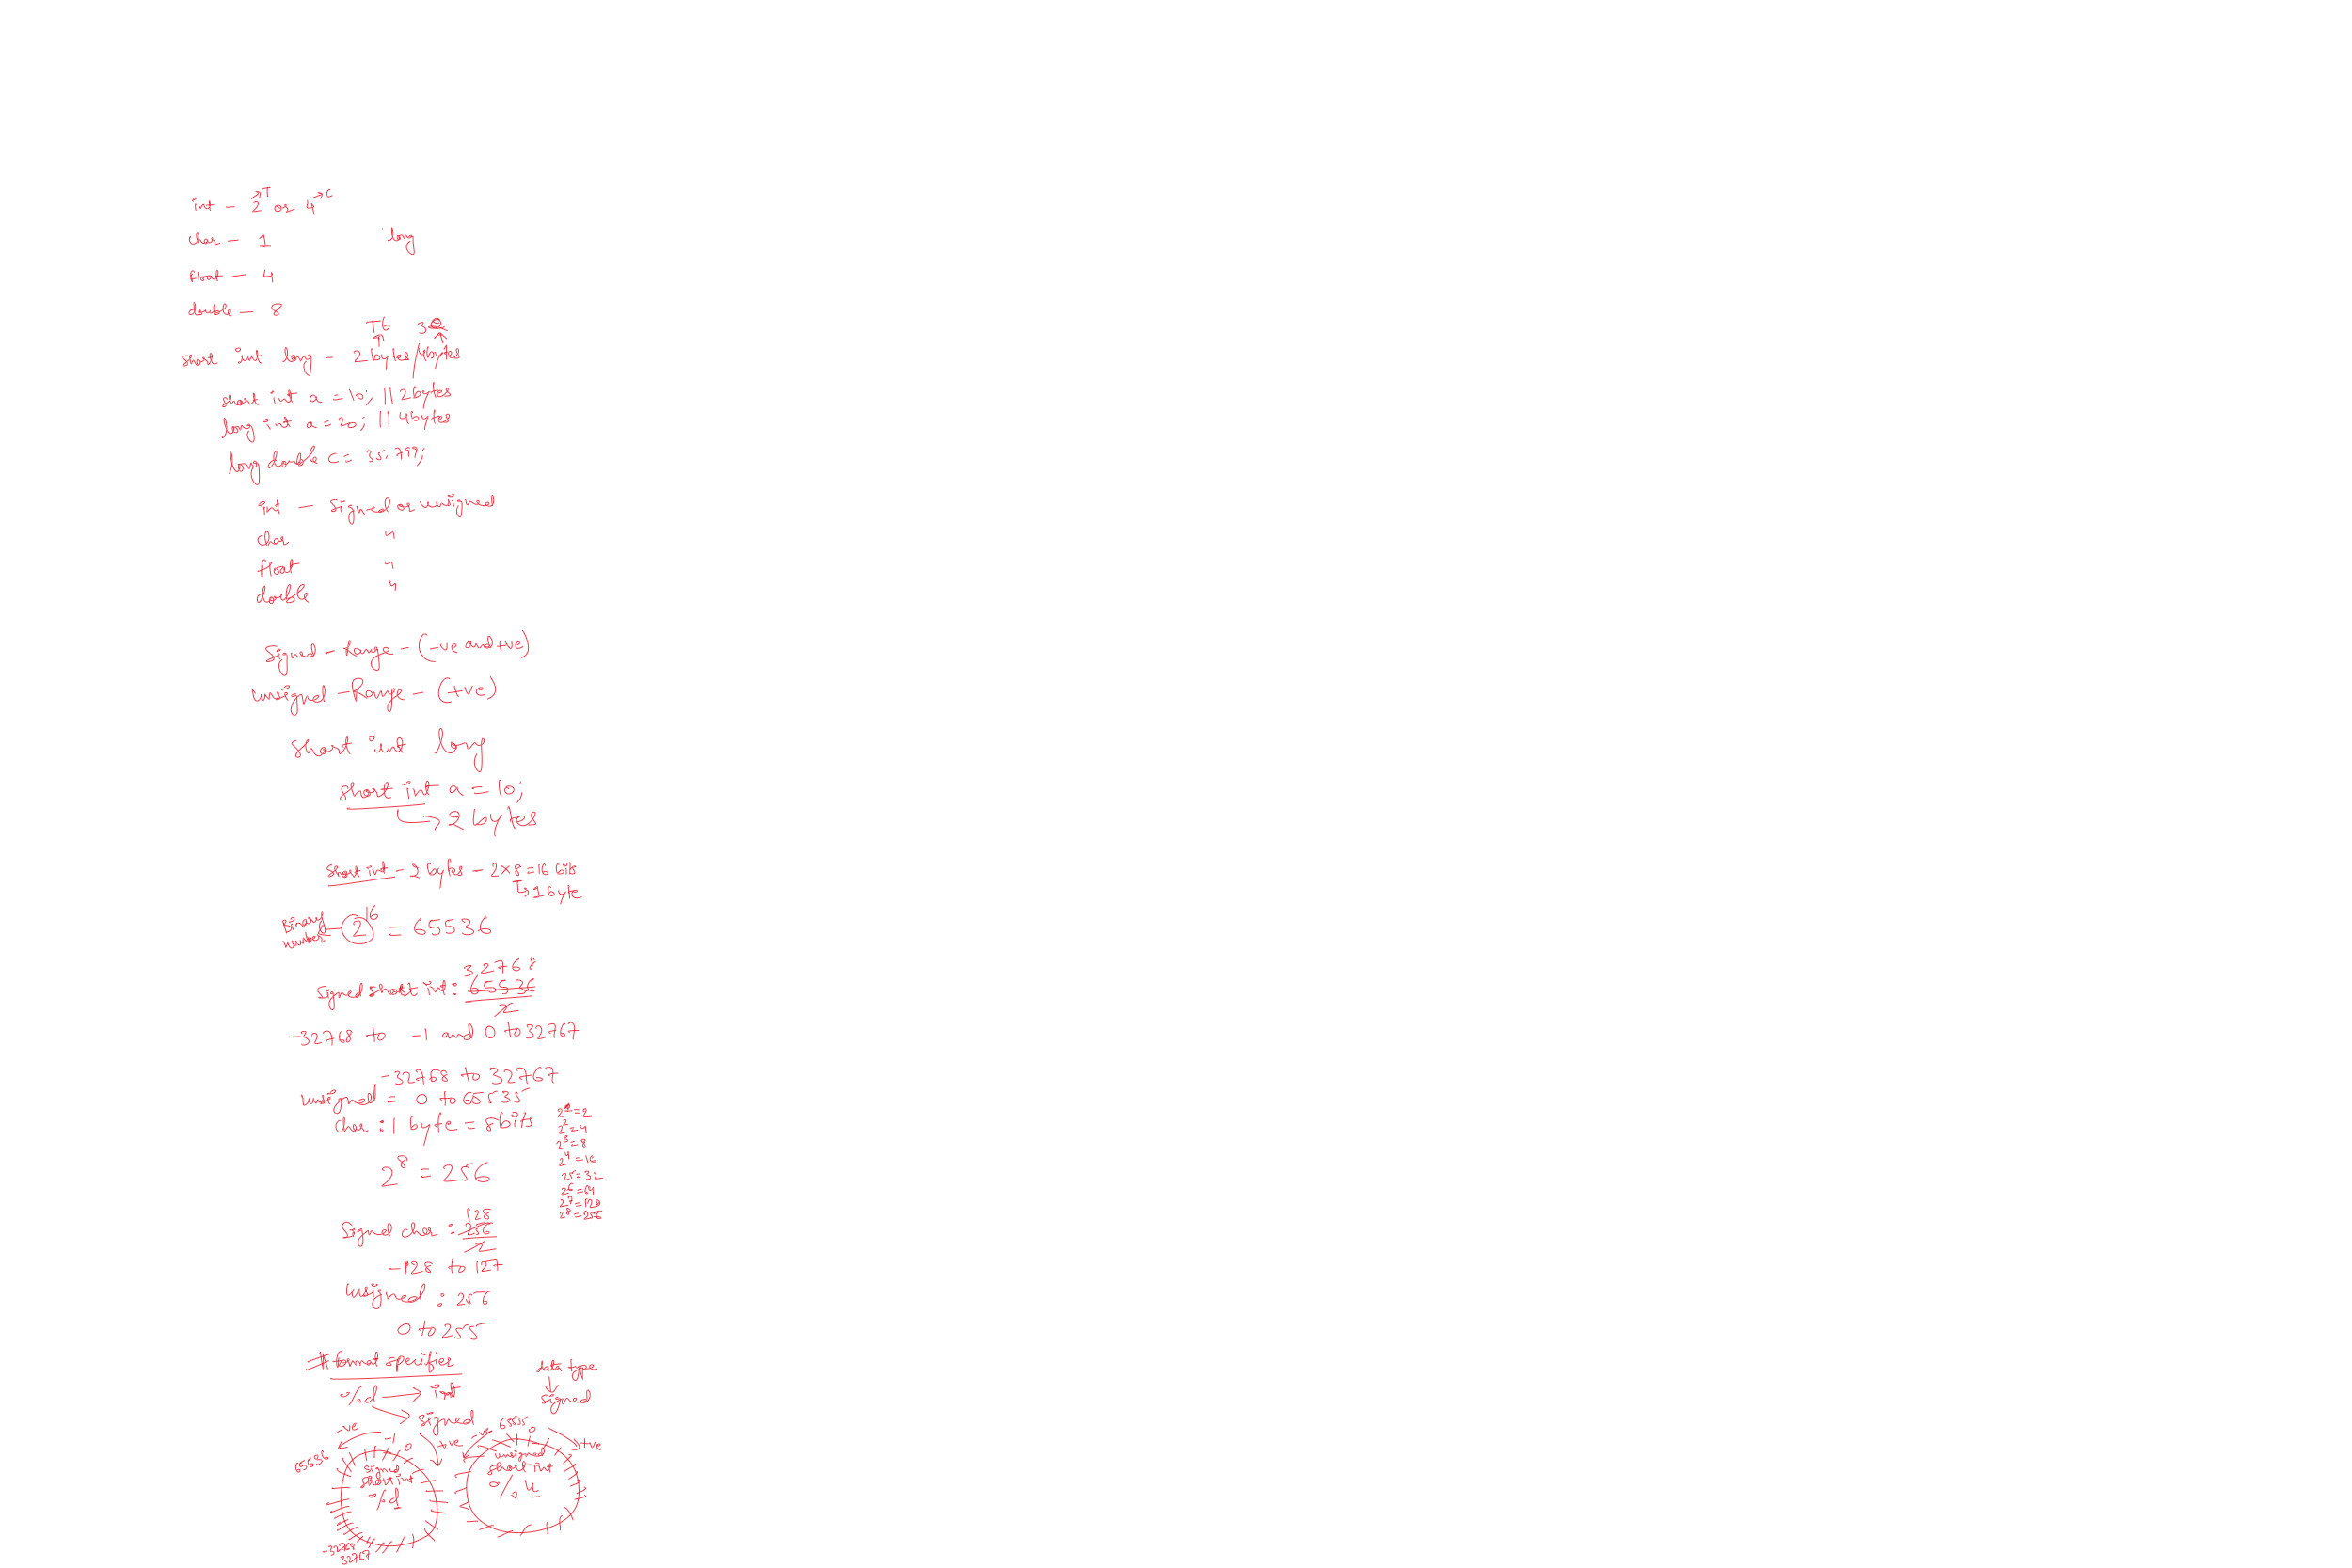 int - 2 →T or 4 →C
char - 1
long
float - 4
double - 8
short int long - 2 bytes / 4 bytes
short int a = 10; || 2 bytes
long int a = 20; || 4 bytes
long double c = 35.799;
int - signed or unsigned
char "
float "
double "
Signed - Range - (-ve and +ve)
unsigned - Range - (+ve)
short int long
short int a = 10;
→ 2 bytes
short int - 2 bytes - 2×8 = 16 bits
→ 1 byte
Binary number - 2^16 = 65536
32768
signed short int : 65536
2
-32768 to -1 and 0 to 32767
-32768 to 32767
unsigned = 0 to 65535
char : 1 byte = 8 bits
2^8 = 256
2^1 = 2
2^2 = 4
2^3 = 8
2^4 = 16
2^5 = 32
2^6 = 64
2^7 = 128
2^8 = 256
128
Signed char : 256
2
-128 to 127
unsigned : 256
0 to 255
# format specifier
%d → int
→ signed
data type
↓
signed
-ve -1 0 +ve
65536
signed
short int
%d
-32768
32767
-ve 65535 0 +ve
unsigned
short int
%u